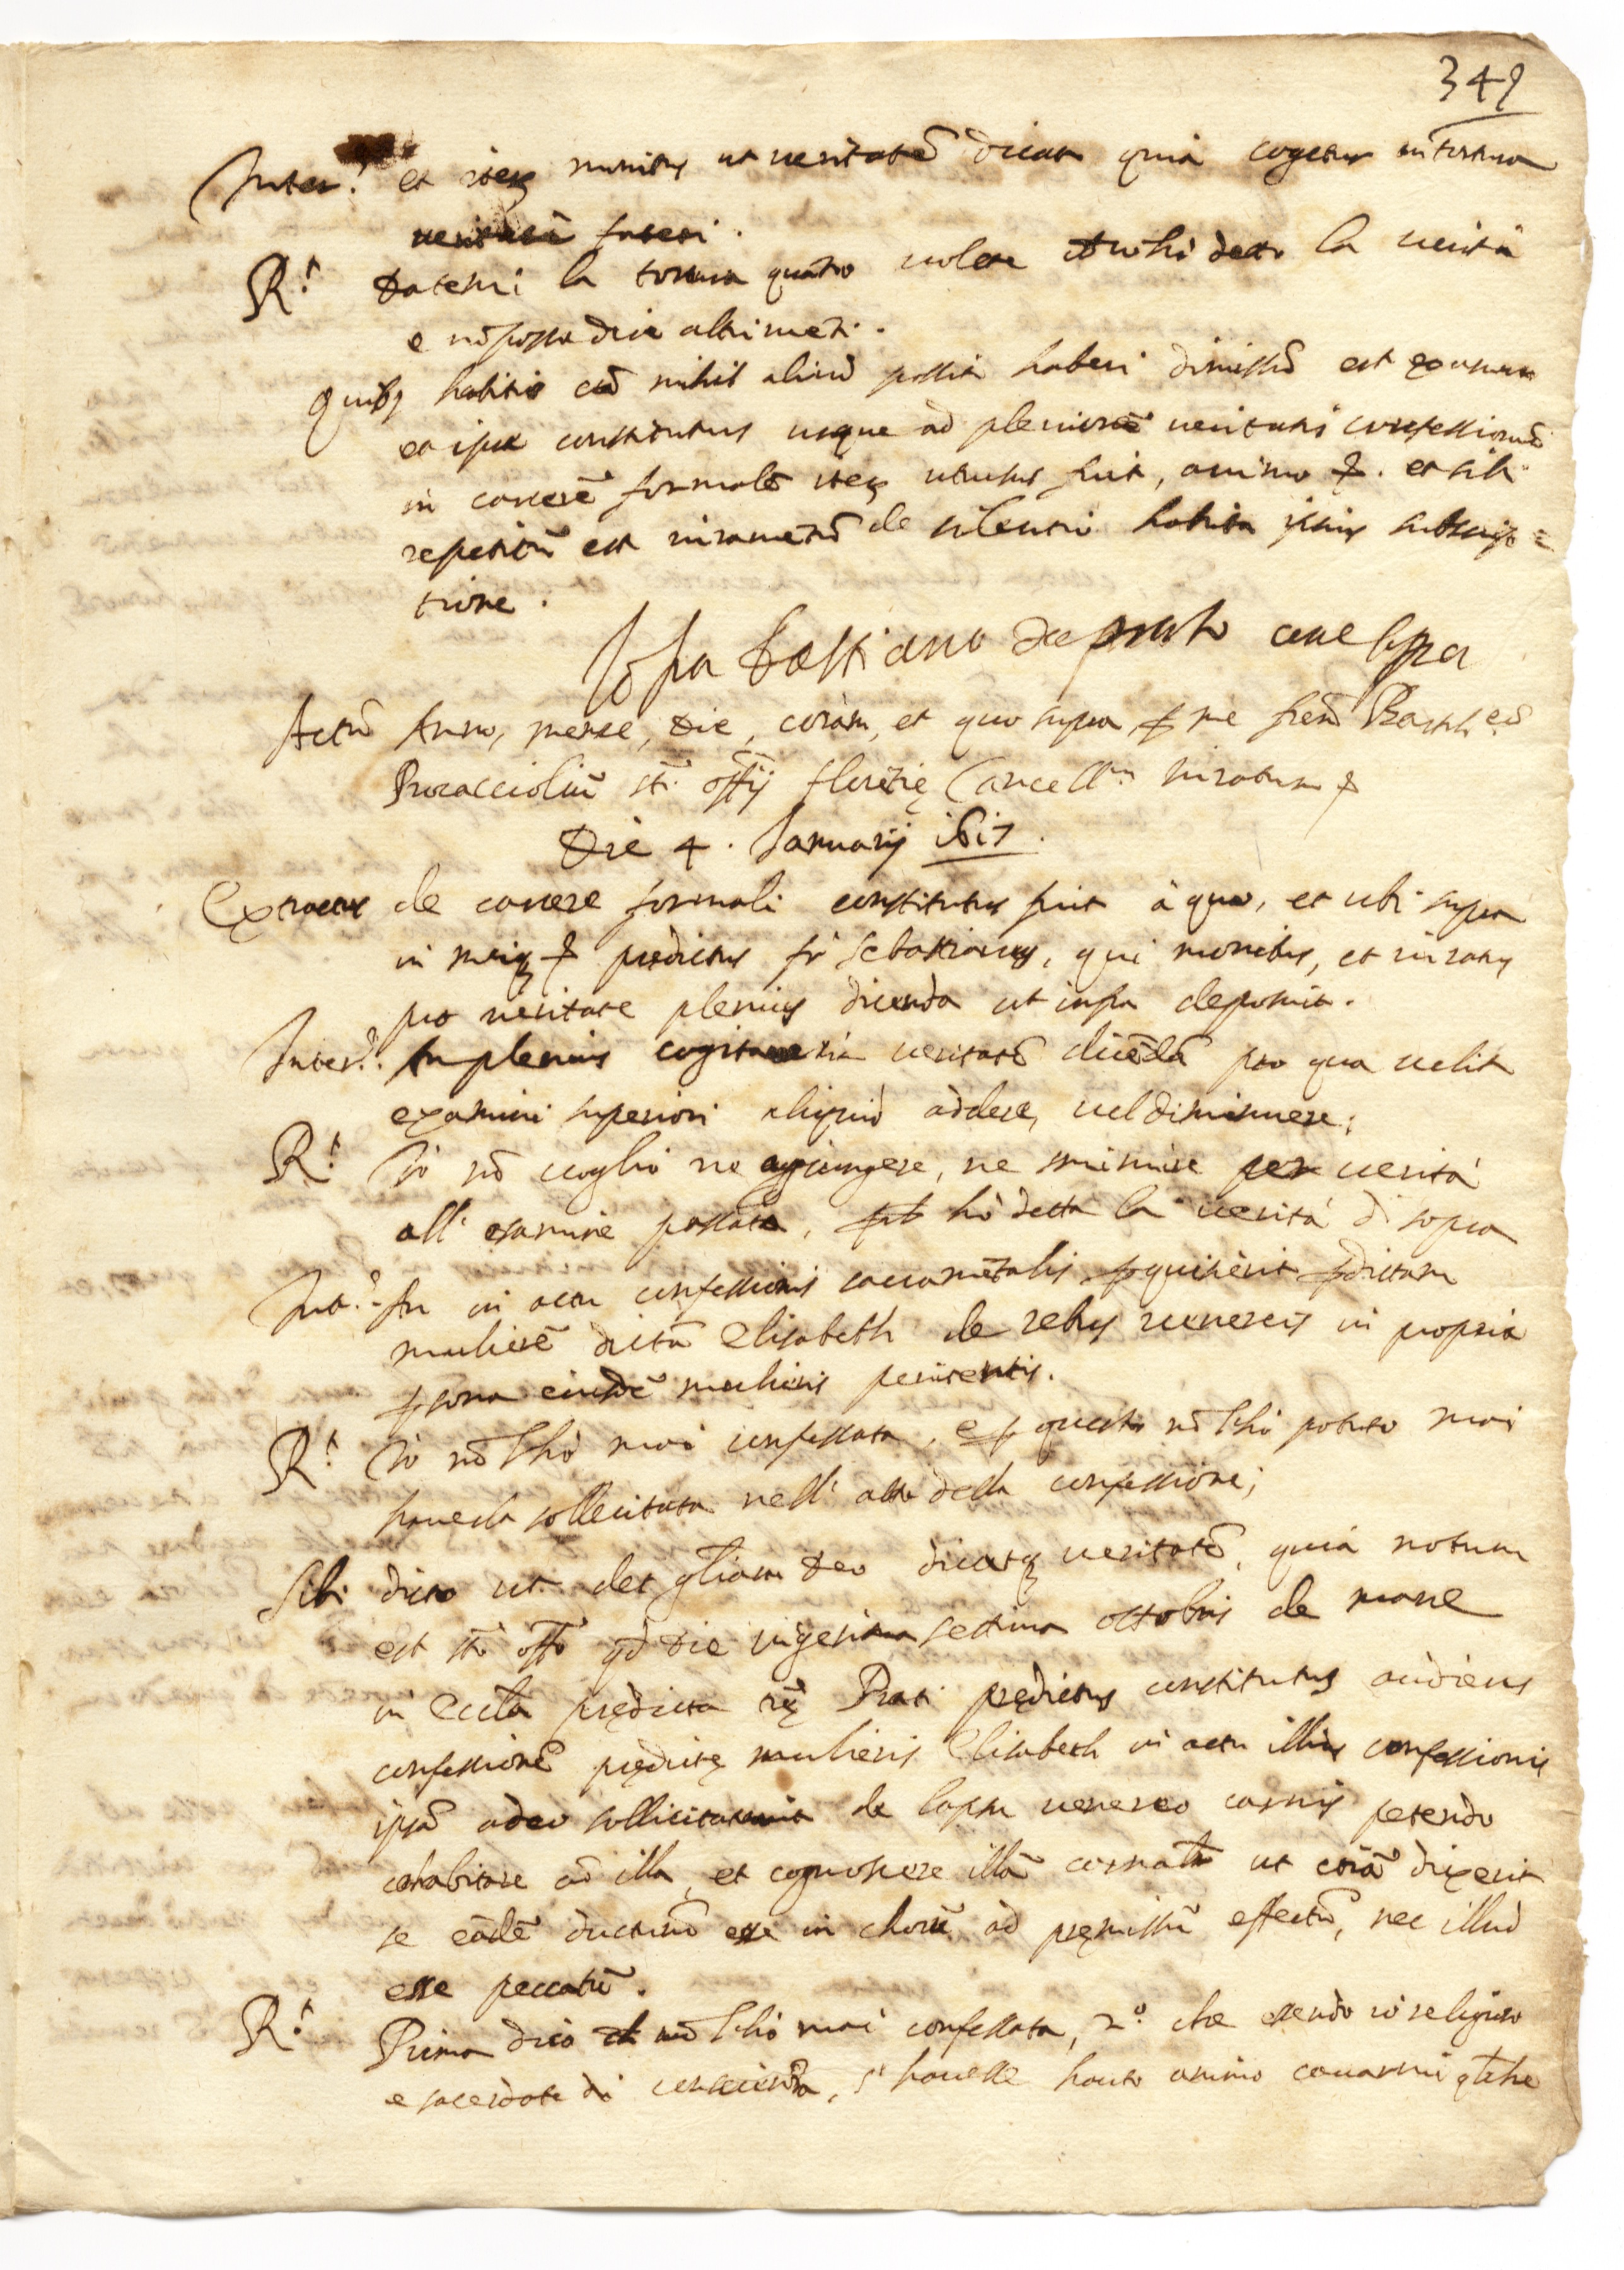 342
Inter.s et iterum monitus ut veritatẽ dicat quia cogetur in tortura
veritatẽ fateri.
R.t Datemi la tortura quãto volete ch'io hò detto la verità
e nõ posso dire altrimẽti.
Quibus habitis cũ nihil aliud possit haberi dimissũ est examen
et ipse constitutus usque ad pleniorẽ veritatis confessionẽ
in carcerẽ formalẽ iterum retrusus fuit, animo &. et sibi
repetitũ est iuramẽtũ de silentio habita ipsius subscrip=
tione.
Io fra Bastiano da prato come sopra
Actũ Anno, mense, die, coram, et quo supra p me frem Barth.eũ
Procacciolũ sti. offij florẽtię Cancell.m iuratum &
Die 4. Januarij 1617.
Extractus de carcere formali constitutus fuit à quo, et ubi supra
in meiq & predictus fr Sebastianus, qui monitus, et iuratus
pro veritate plenius dicenda ut infra deposuit.
Inter.s An plenius cogitaverit veritatẽ dicẽdã pro qua velit
examini superiori aliquid addere, vel diminuere;
R.t Io nõ voglio ne aggiungere, ne sminuire per verità
all' esamine passato, pch hò detta la verità di sopra
Int.s An in actu confessionis sacramẽtalis pquisierit pdictam
mulierẽ dictã Elisabeth de rebus venereis in propria
psona eiusdẽ mulieris penitentis.
R.t Io nõ l'hò mai confessata, e p questo nõ l'hò potuto mai
haverla sollecitata nell' atto della confessione;
Sibi dicto ut det gliam Deo dicatq veritatẽ, quia notum
est sto offo qd die vigesima settima ottobris de mane
in Eccla prędicta Prati prędictus constitutus audiens
confessionẽ prędictę mulieris Elisabeth in actu illius confessionis
ipsã adeo sollicitaverit de lapsu venereo carnis petendo
cohabitare cũ illa, et cognoscere illã carnalr ut etiã dixerit
se eãdẽ ducturũ esse in chorũ ad pręmissũ effectũ, nec illud
esse peccatũ.
R.t Prima dico ch nõ l'hò mai confessata, 2.o che essendo io religioso
e sacerdote di conscienza, s' havesse hauto animo cavarmi qlche